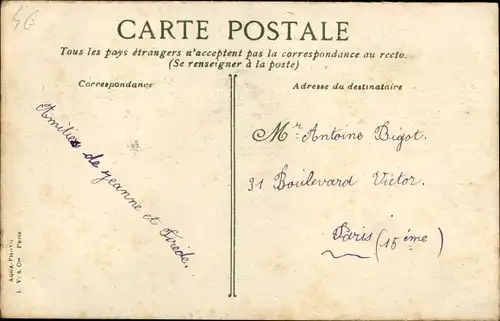 CARTE POSTALE
Tous les pays étrangers n'acceptent pas la correspondance au recto.
(Se renseigner à la poste)
Correspondance
Adresse du destinataire
Amitiés de Jeanne et
Mr. Antoine Bigot.
31 Boulevard Victor.
Paris (15ème)
AQUA-PHOTO
L. V. & Cie Paris